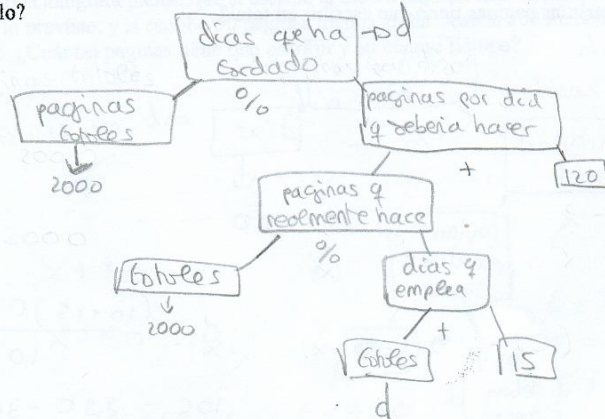 lo?
dias qe ha → d
tardado
paginas
totales
%
paginas por dia
q deberia hacer
2000
+
120
paginas q
realmente hace
%
totales
dias q
emplea
2000
+
totales
15
d